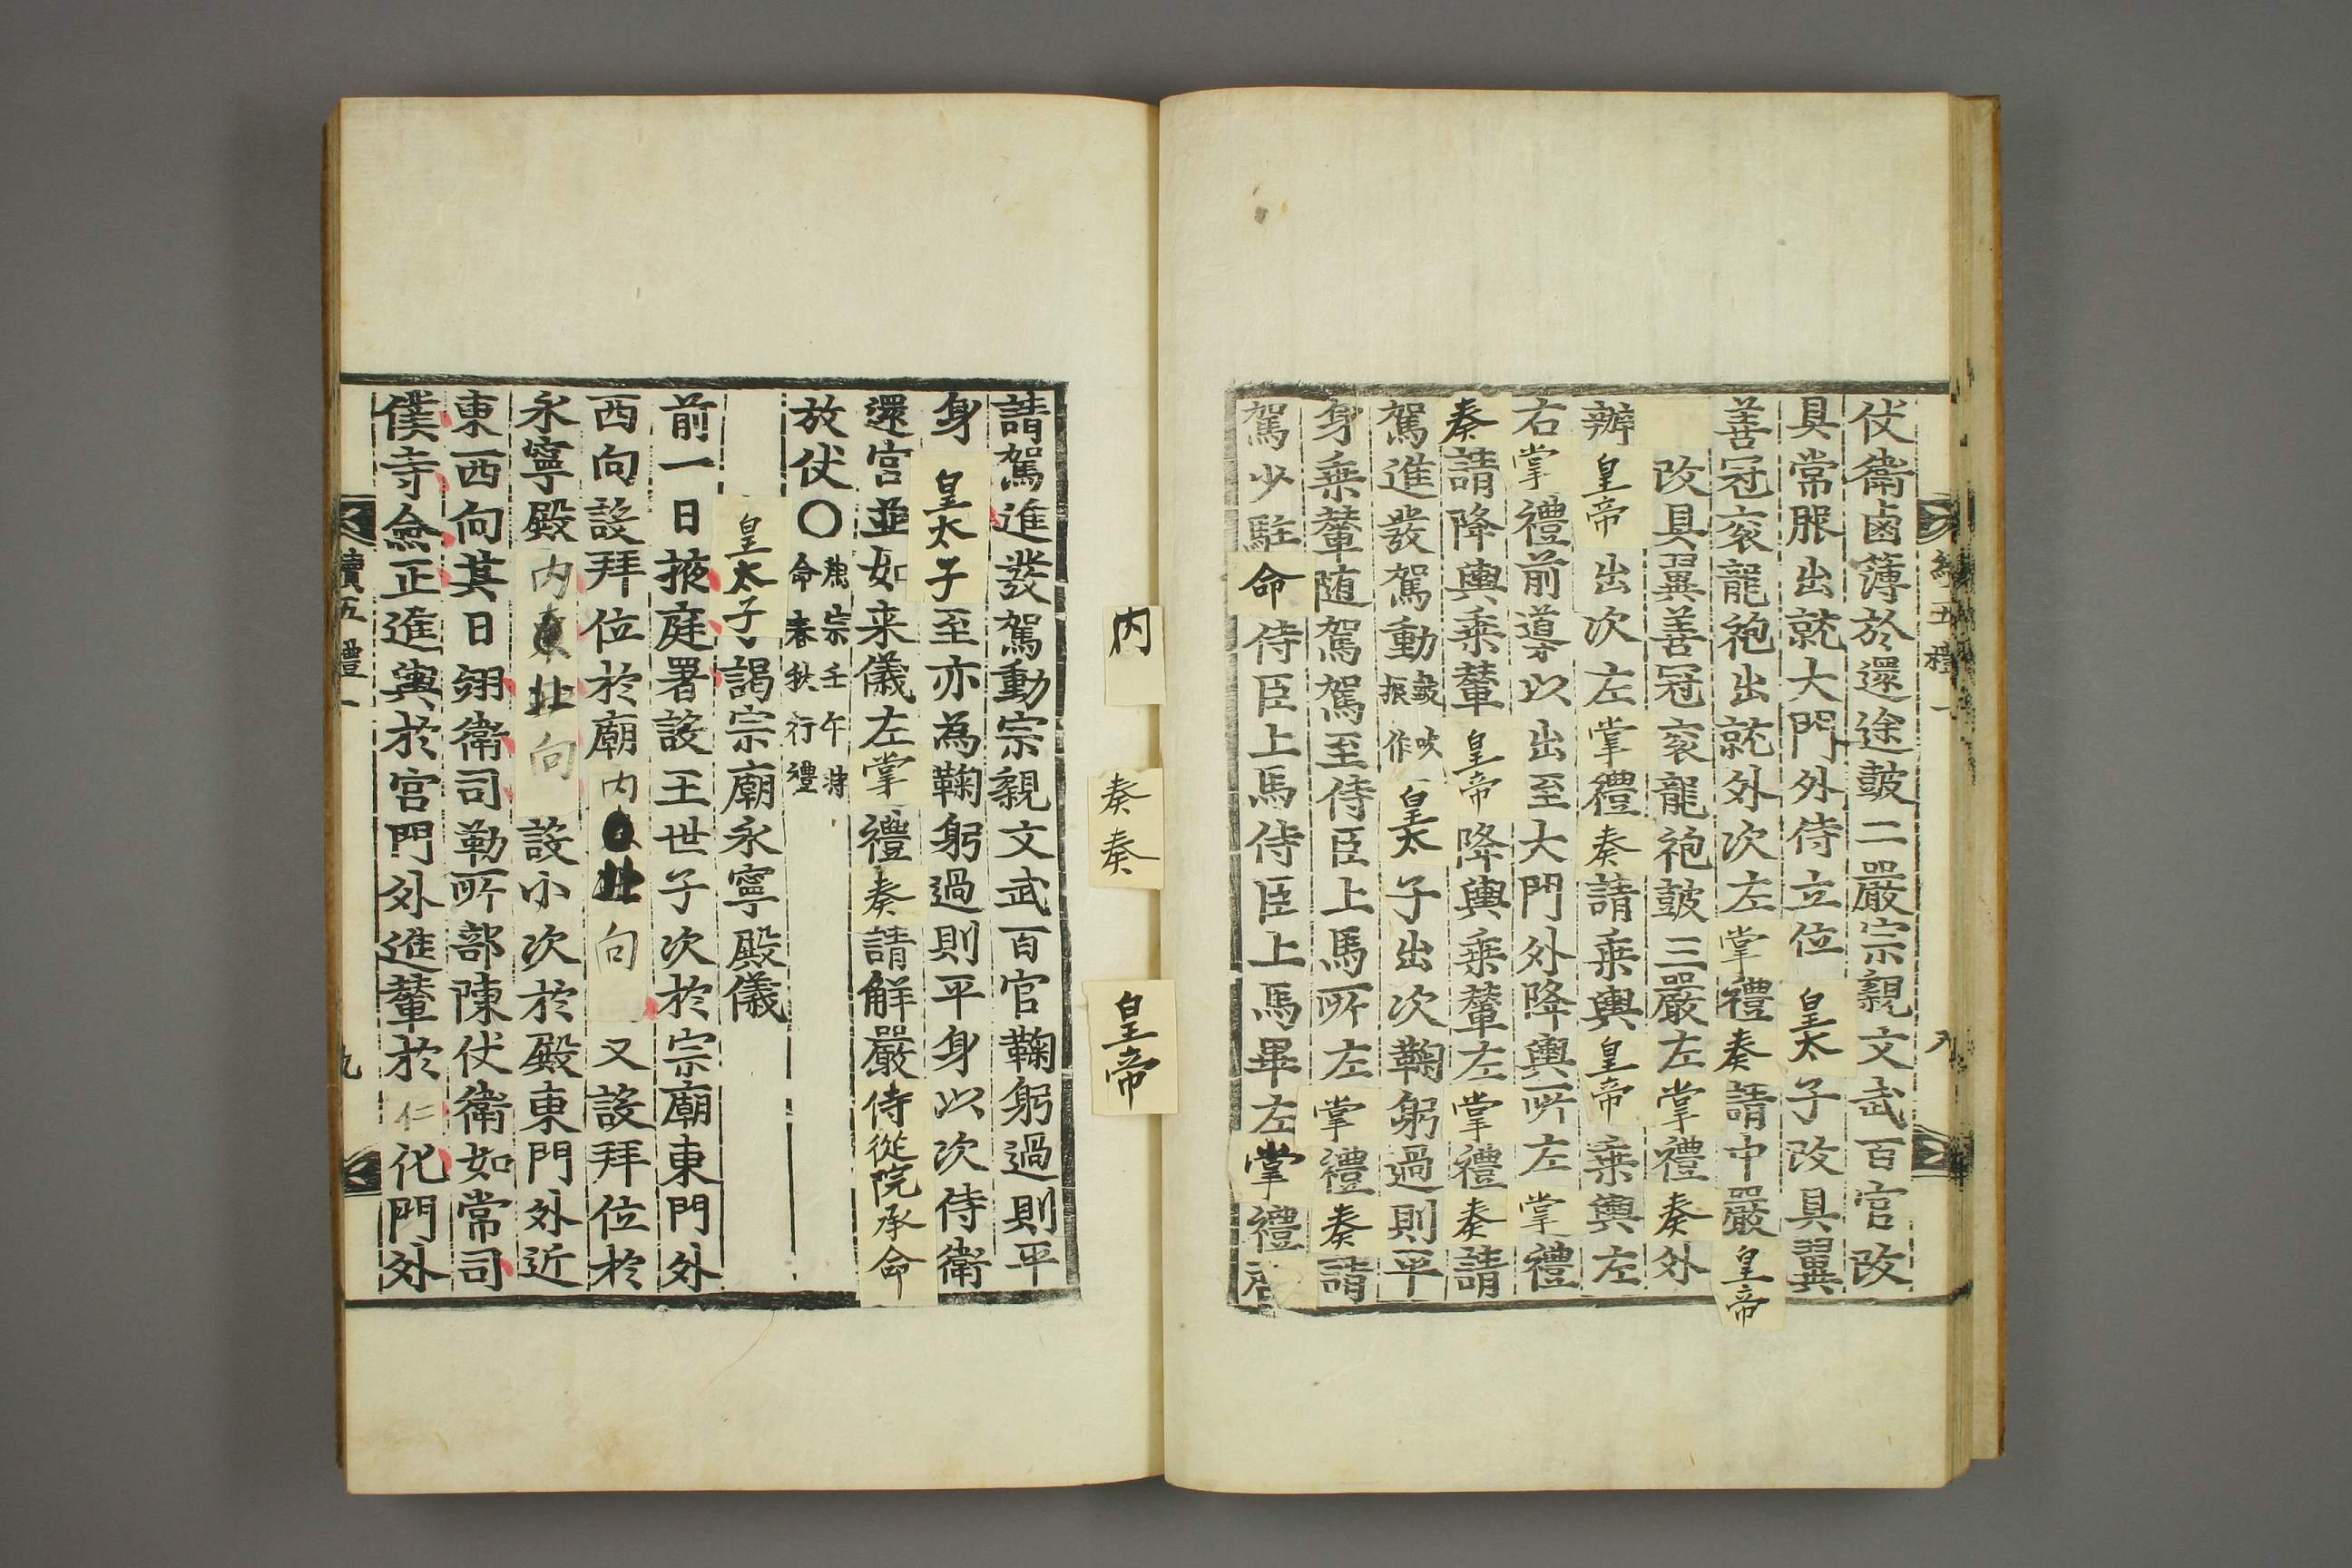 仗衛鹵簿於還途鼓二嚴宗親文武百官改
具常服出就大門外侍立位皇太子改具翼
善冠衮龍袍出就外次左掌禮奏請中嚴皇帝
改具翼善冠衮龍袍鼓三嚴左掌禮奏外
辦皇帝出次左掌禮奏請乘輿皇帝乘輿左
右掌禮前導以出至大門外降輿所左掌禮
奏請降輿乘輦皇帝降輿乘輦左掌禮奏請
駕進發駕動鼓吹振作皇太子出次鞠躬過則平
身乘輦随駕駕至侍臣上馬所左掌禮奏請
駕少駐命侍臣上馬侍臣上馬畢左掌禮
内
奏奏
皇帝
請駕進發駕動宗親文武百官鞠躬過則平
身皇太子至亦為鞠躬過則平身以次侍衛
還宮並如来儀左掌禮奏請解嚴侍從院承命
放仗〇肅宗壬午特命春秋行禮
皇太子謁宗廟永寧殿儀
前一日掖庭署設王世子次於宗廟東門外
西向設拜位於廟内北向又設拜位於
永寧殿内北向設小次於殿東門外近
東西向其日翊衛司勒所部陳仗衛如常司
僕寺僉正進輿於宮門外進輦於仁化門外
續五禮一
九